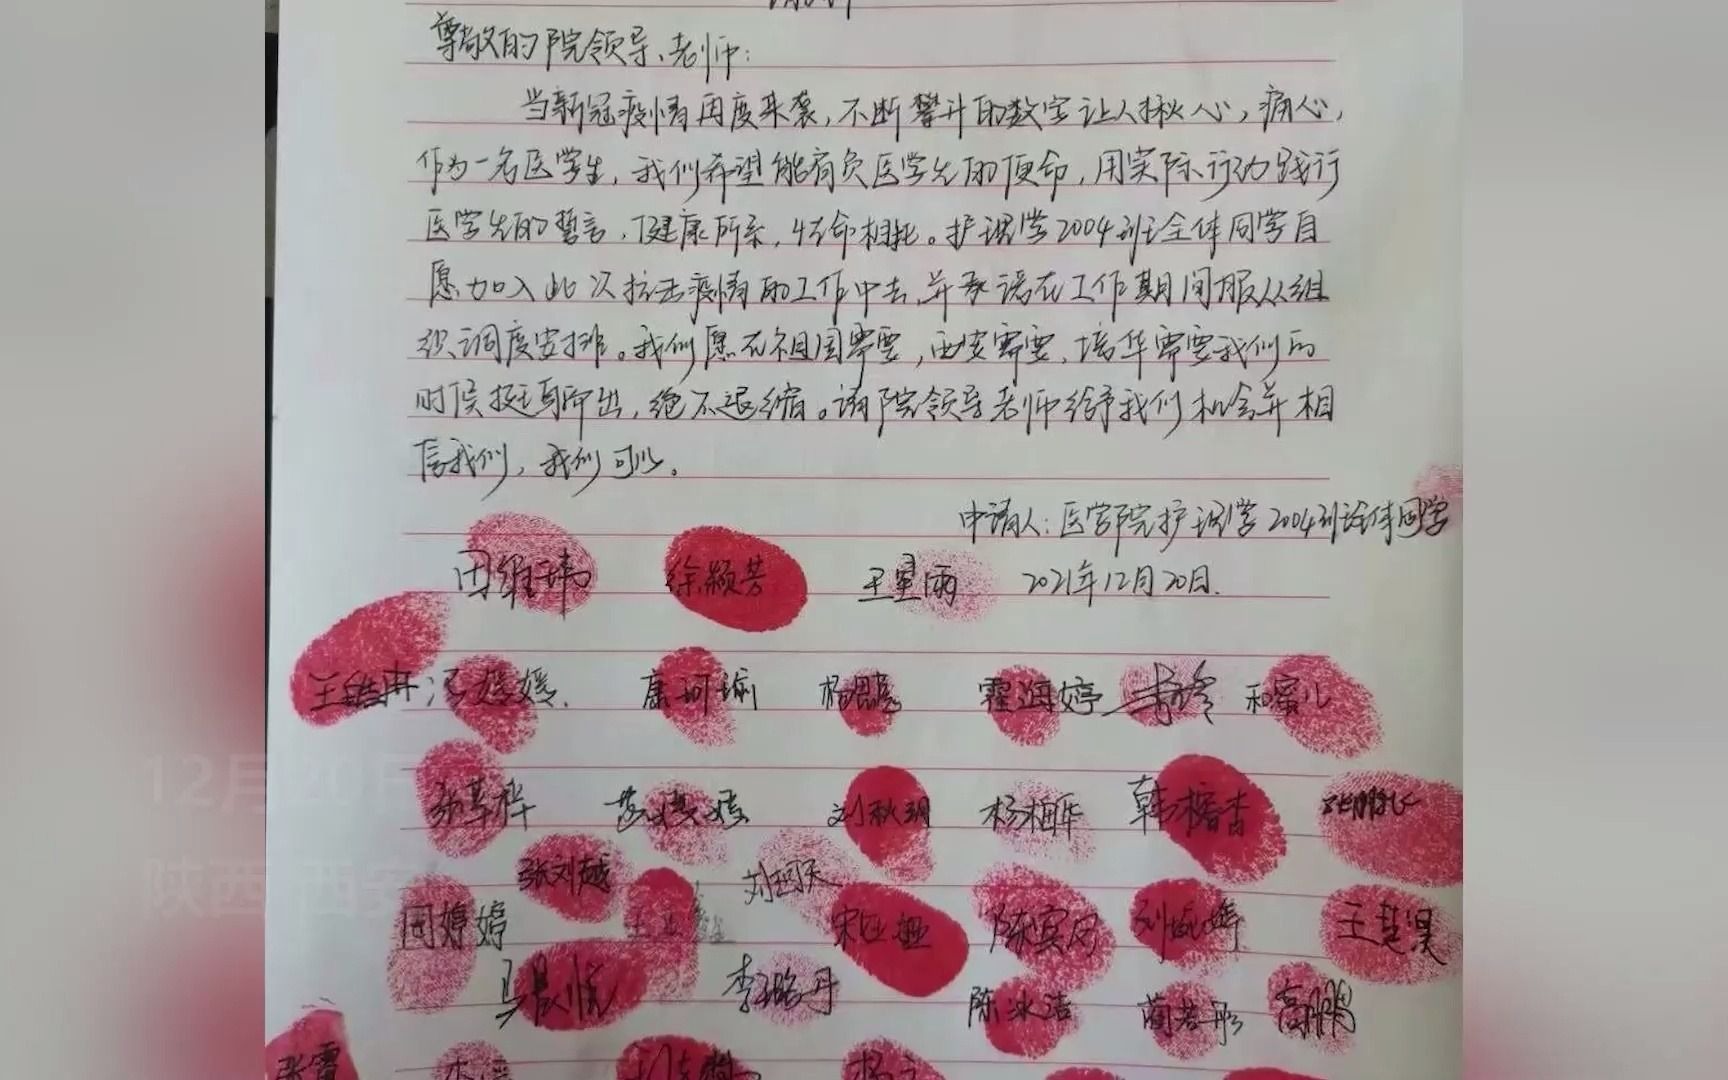 尊敬的院领导、老师:
当新冠疫情再度来袭,不断攀升的数字让人揪心,痛心,
作为一名医学生,我们希望能肩负医学生的使命,用实际行动践行
医学生的誓言,健康所系,性命相托。护理学2004班全体同学自
愿加入此次抗击疫情的工作中去,并承诺在工作期间服从组
织调度安排。我们愿在祖国需要,西安需要,培华需要我们的
时候挺身而出,绝不退缩。请院领导老师给予我们机会并相
信我们,我们可以。
申请人:医学院护理学2004班全体同学
徐颖芳 王星雨 2021年12月20日.
冯媛媛. 康珂瑜 霍海婷 和蜜儿
刘秋玥 杨梅华 韩椿杏
12月20日
张刘越
陕西 西安
周婷婷 陈宾风 王楚昊
马晨悦 李璐丹
陈冰洁 蔺若彤 高鹏
张雷